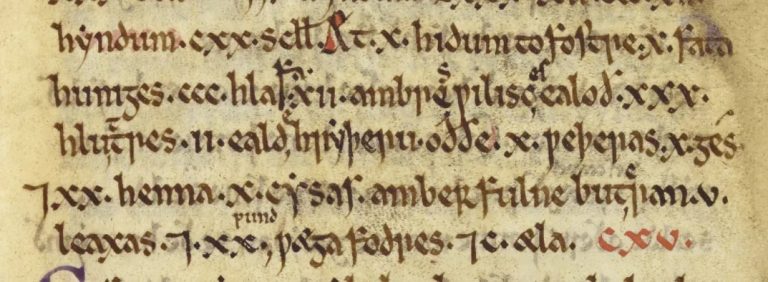 hyndum. cxx. scll̃. Æt. x. hidum to fostre. x. fata
huniges. ccc. hlafa. xii. ambres ƿilisces ealoð. xxx.
hluttres. ii. ealde hryþeru. oððe. x. ƿeþeras. x. gés.
⁊ xx. henna. x. cysas. amber fulne buteran. v.
leaxas. ⁊. xx. pund ƿæga fodres. ⁊ c. æla. cxv.